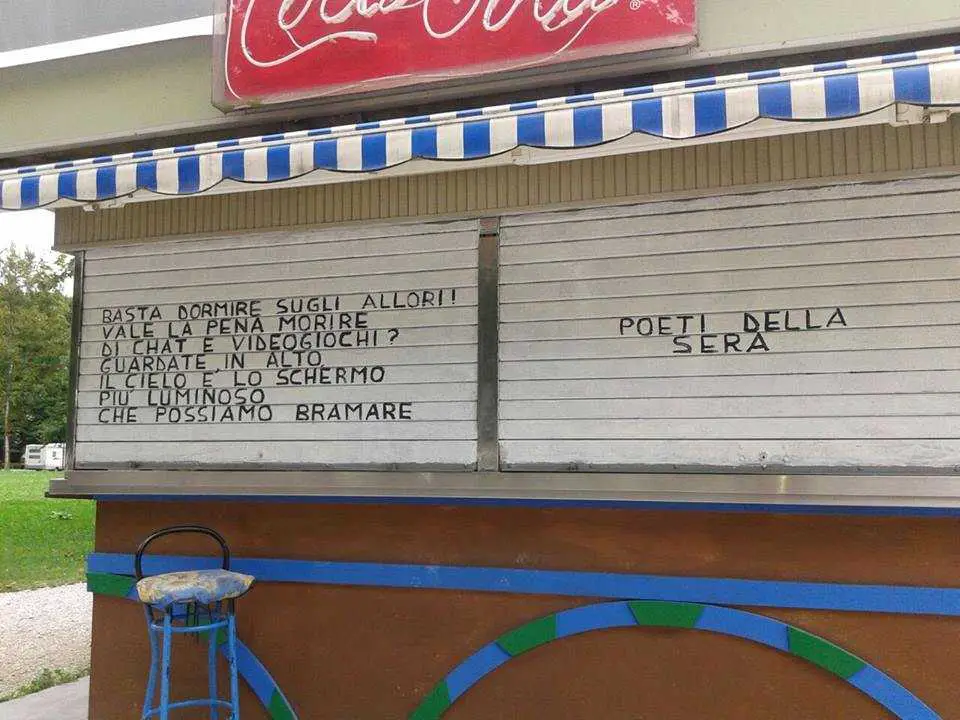 Coca-Cola®
BASTA DORMIRE SUGLI ALLORI!
VALE LA PENA MORIRE
DI CHAT E VIDEOGIOCHI?
GUARDATE IN ALTO,
IL CIELO E' LO SCHERMO
PIU' LUMINOSO
CHE POSSIAMO BRAMARE
POETI DELLA
SERA